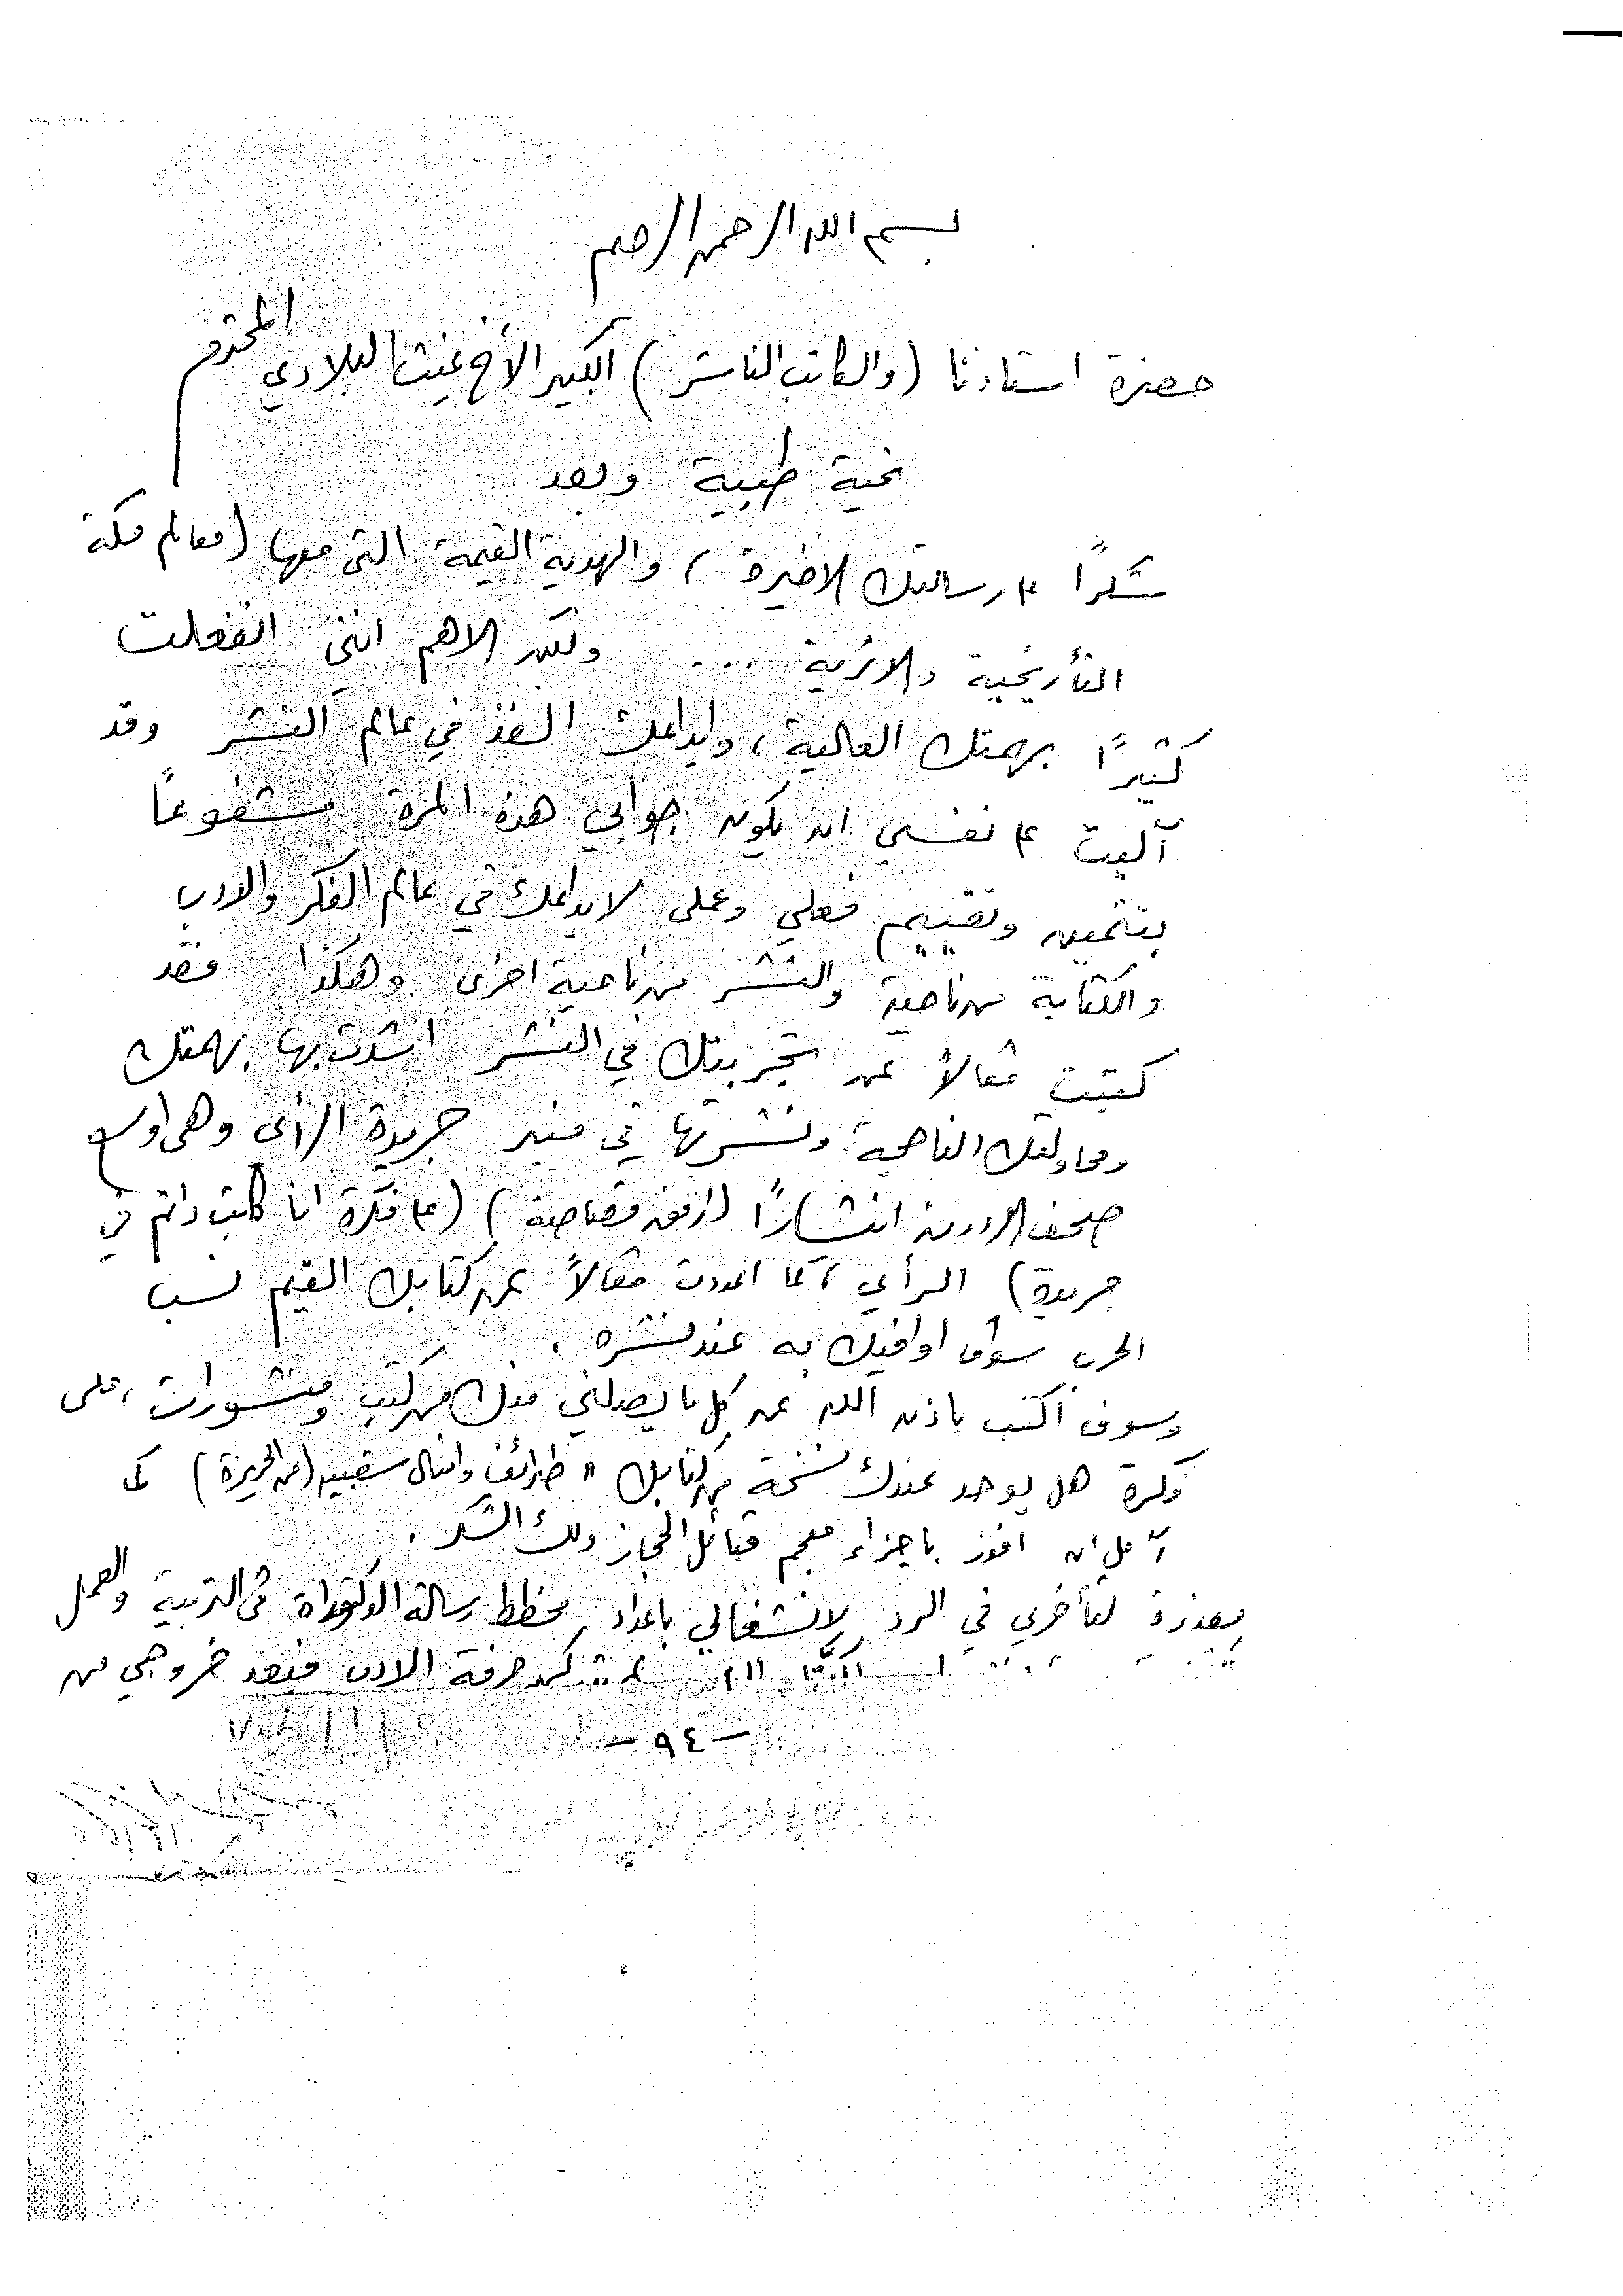 بسم الله الرحمن الرحيم
حضرة استاذنا (والكاتب الناشر) الكبير الأخ غيث البلادي المحترم
تحية طيبة وبعد
شكراً على رسالتك الاخيرة، والهدية القيمة التي معها (معالم مكة
التأريخية والاثرية .... ولكن الاهم انني انفعلت
كثيراً بهمتك العالية، وابداعك الفذ في عالم النشر وقد
آليت على نفسي ان يكون جوابي هذه المرة مشفوعاً
بتثمين وتقييم فعلي وعملي لابداعك في عالم الفكر والادب
والكتابة من ناحية والنشر من ناحية اخرى وهكذا فقد
كتبت مقالاً عن تجربتك في النشر اشدت بها بهمتك
ومحاولتك الناجحة ونشرتها في منبر جريدة الرأي وهي اوسع
صحف الاردن انتشاراً (ارفق قصاصة) (على فكرة انا كاتب دائم في
جريدة) الرأي، كما اعددت مقالاً عن كتابك القيم نسب
حرب سوف اوافيك به عند نشره.
وسوف اكتب باذن الله عن كل ما يصلني منك من كتب ومنشورات، على
فكرة هل يوجد عندك نسخة من كتابك "طرائف وامثال شعبية (من الجزيرة) كما
آمل ان افوز باجزاء معجم قبائل الحجاز ولك الشكر.
معذرة لتأخري في الرد لانشغالي باعداد مخطط رسالة الدكتوراة في التربية والعمل
حرفة الادب فبعد خروجي من
- ٩٤ -